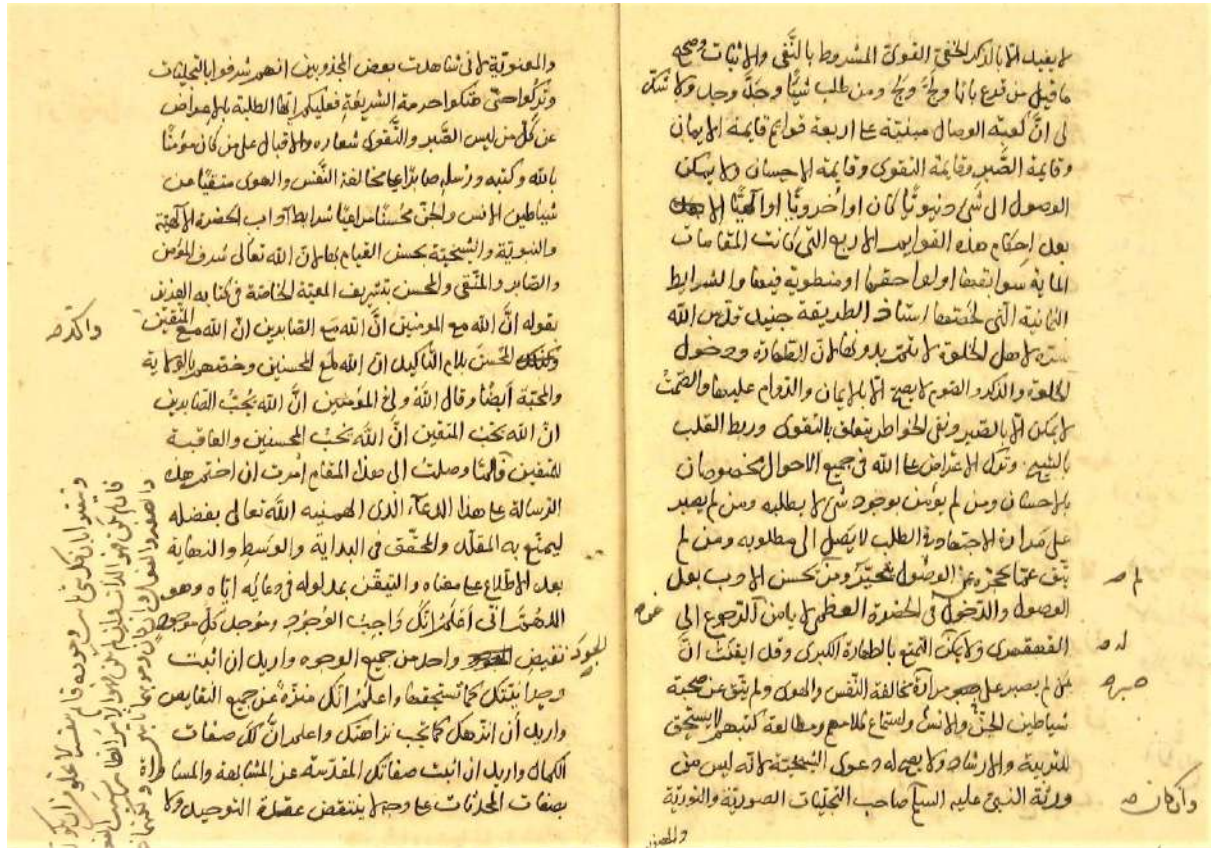 لا يفيد الا بالذكر الخفي القوى المشروط بالنَّفى والاثبات وصح
ما قيل من قرع بابا ولجَّ ولج ومن طلب شيئًا وجدَّ وجد ولا شك
فى انَّ كعبة الوصال مبنيّة على اربعة قوائم قايمة الايمان
وقايمة الصَّبر وقايمة التقوى وقايمة الاحسان ولا يمكن
الوصول الى شئ دنيويًّا كان او اُخرويًّا او الٓهيًّا الا
بعد اِحكام هذه القوايم الاربع التى كانت المقامات
الماية سوابقها او لواحقها او منطوية فيها والشرايط
الثمانية الّتى اختصها استاد الطريقة جنيد قدّس الله
سرّه لاهل الخلوة لا يتمّ بدونها لانّ الطهارة ودخول
الخلوة والذكر والصَّوم لا يصح الّا بالايمان والدَّوام عليها والصَّمتُ
لا يمكن الّا بالصَّبر ونفى الخواطر يتعلق بالتقوى وربط القلب
بالشيخ وترك الاعتراض على الله فى جميع الاحوال مخصوصان
بالاحسان ومن لم يؤمن بوجود شئ لا يطلبه ومن لم يصبر
على مَرارة الاجتهاد فى الطلب لا يَصِل الى مطلوبه ومن لم
يتّق عمّا يحجزه عن الوصُول تحيّر ومن لم يحسن الادب بعد
الوصول والدّخول فى الحضرة العظمى لا يامن الرّجوع الى
القهقرى ولا يمكن التمتع بالطهارة الكبرى وقد ايقنتُ انَّ
من لم يصبر على مرارة مخالفة النَّفس والهوى ولم يتّق عن صحبة
شياطين الجنّ والانس واستماع كلامهم ومطالعة كتبهم لا يستحق
للتربية والارشاد ولا يصح له دعوى الشيخيّة لانّه ليس من
ورثة النبىّ عليه السلام صاحب التجليات الصوريّة والنوريّة
لم صح
له صح
صبره
وان كان صح
والمعنويّة
والمعنويّة لانى شاهدت بعض المجذوبين انهم شرفوا بالتجليات
وتركوا حتى هتكوا حرمة الشريعة فعليكم ايّها الطلبة بالاعراض
عن كلّ من ليس الصَّبر والتَّقوى شعاره والاقبال على من كان مؤمنًا
بالله وكتبه ورسله صابرًا على مخالفة النَّفس والهوى متّقيًا من
شياطين الانس والجنّ مُحسنًا مراعيًا شرايط آداب الحضرة الالٓهيّة
والنبويّة والشيخيّة بحسن القيام بها لانّ الله تعالى شرف المؤمن
والصّابر والمتّقى والمحسن بتشريف المعيّة الخاصّة فى كتابه العزيز
بقوله انَّ الله مع المؤمنين انَّ الله مَع الصّابرين انّ الله مع المتّقين
المحسنَ بلام التاكيد ان الله لمع المحسنين وخصّهم بالولاية
والمحبّة أيضًا وقال اللهُ ولىُّ المؤمنين انَّ الله يُحبُّ الصّابرين
انّ الله يحبُّ المتقين انَّ الله يحبُّ المحسنين والعاقبة
للمتقين فلمّا وصلتُ الى هذا المقام اُمرت ان اختم هذه
الرّسالة على هذا الدعآء الذى الهمنيه الله تعالى بفضله
ليمتّع به المقلّد والمحقّق فى البداية والوَسط والنهاية
بعد الاطّلاع على معناه والتيقّن بمدلوله فى دعائه ايّاه وهو
اللهُمَّ انّى اَعْلمُ انّكَ وَاجبُ الوُجُود وموجد كلّ موجود
نقيض واحد من جميع الوجوه واريد ان اثبت
وحدانيّتك كما تستحقها واعلمُ انّك منزّه عن جميع النقايص
واريد أن انزّهك كما تحبّ نزاهتك واعلم انَّ لك صفات
الكمال واريد ان اثبت صفاتك المقدّسة عن المشابهة والمساواة
بصفات المحدثات على وجه لا ينتقض عقدة التوحيد ولا
واكّد صح